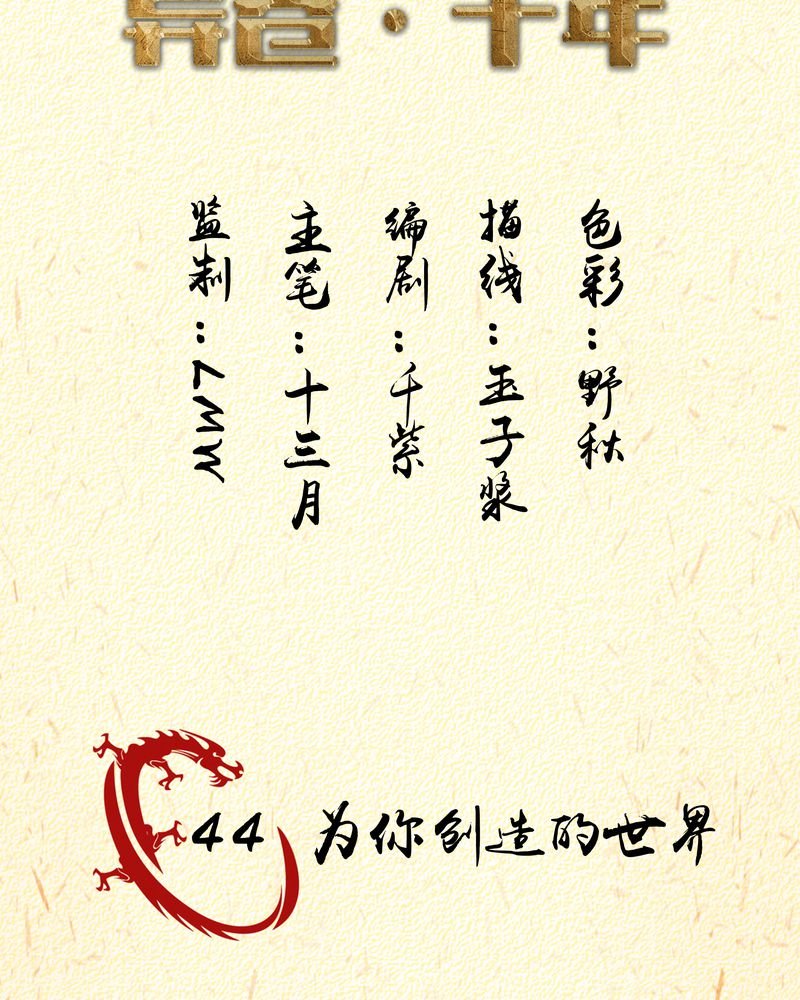 监制：
主笔：十三月
编剧：千紫
描线：玉子浆
色彩：野秋
44 为你创造的世界